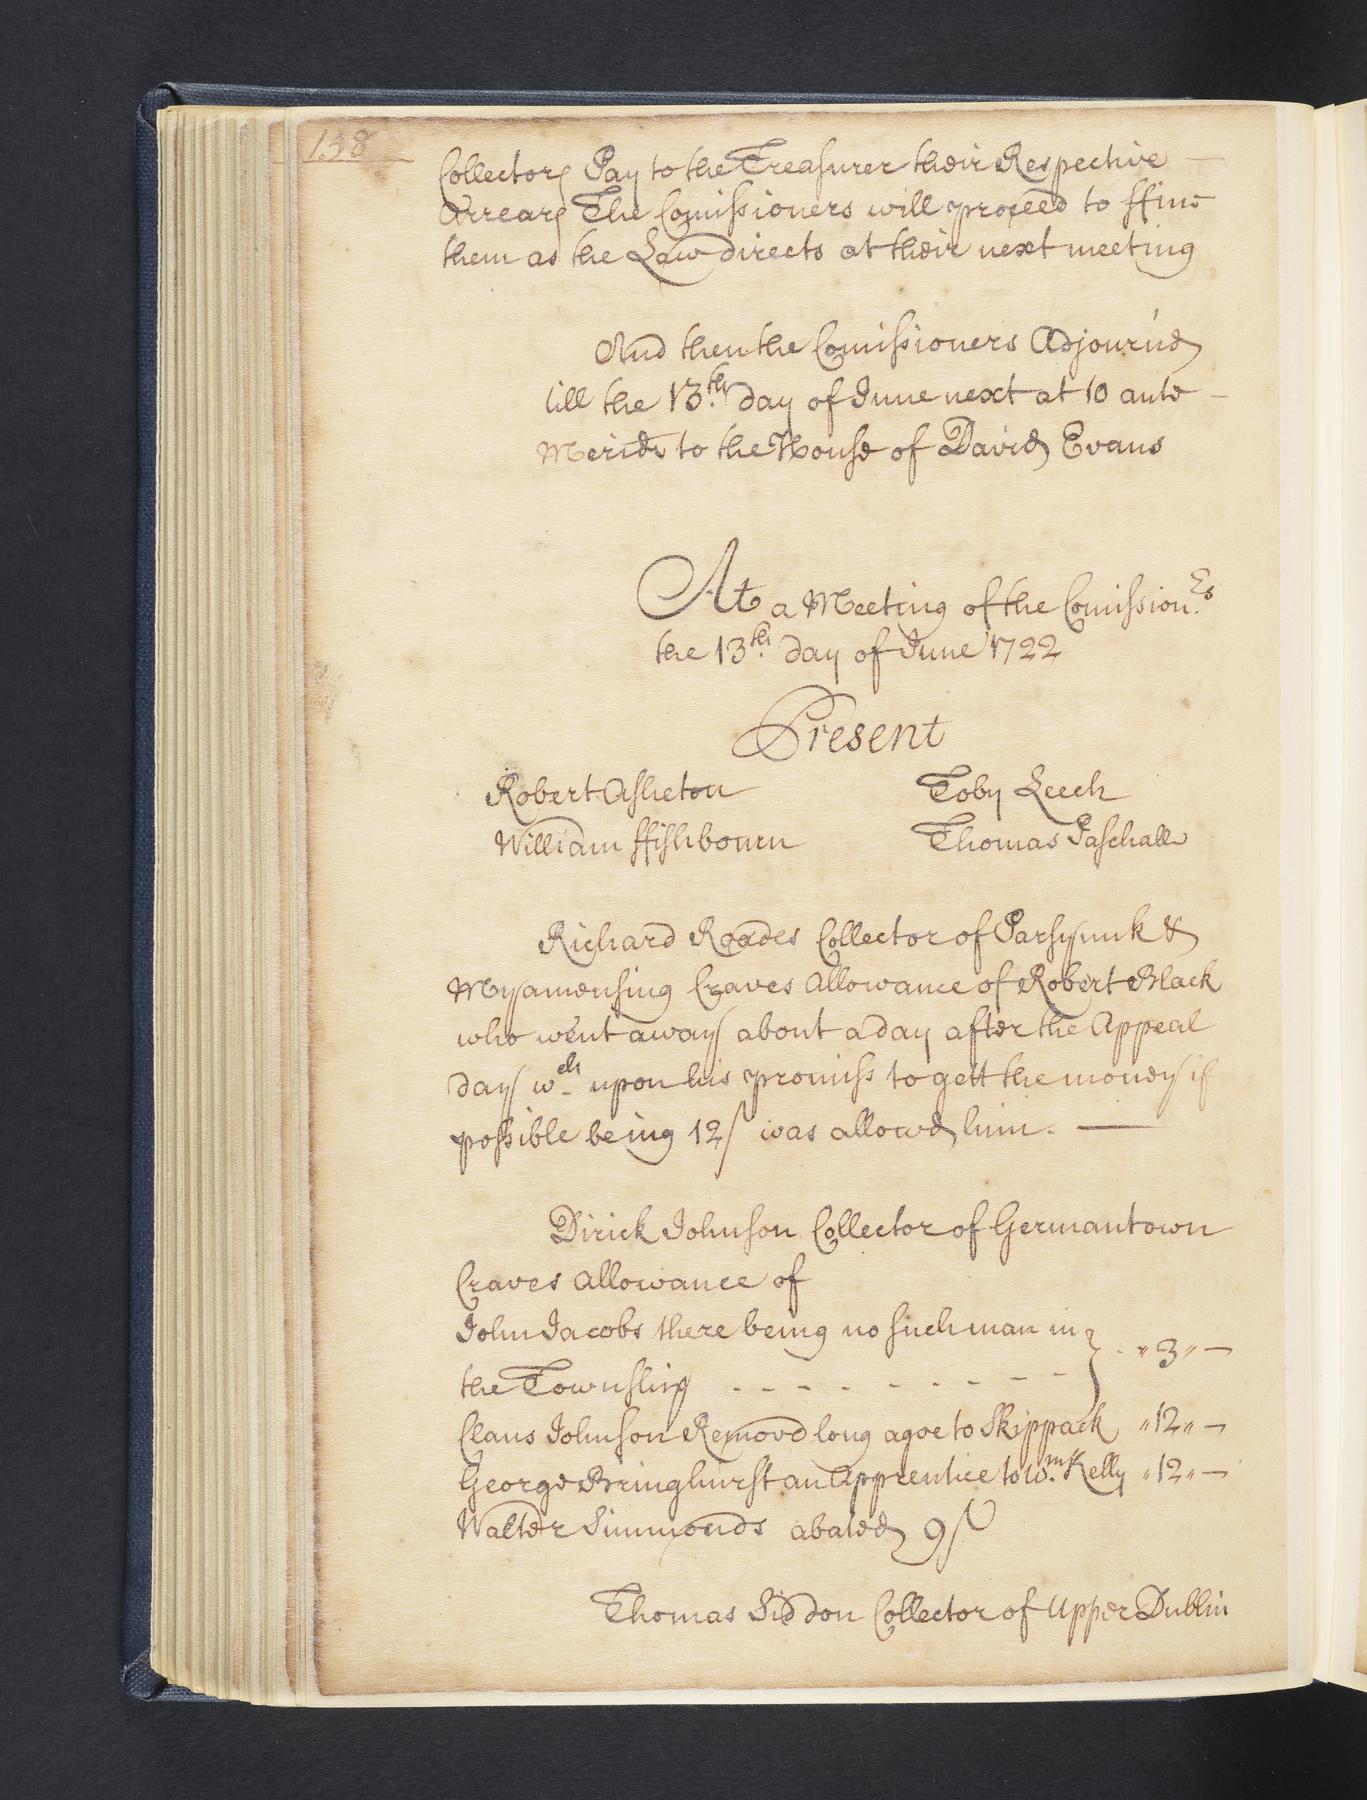 138
Collectors Pay to the Treasurer their Respective
Arrears The Comissioners will proceed to ffine
them as the Law directs at their next meeting
And then the Comissioners Adjourn'd
till the 13th day of June next at 10 ante
Meridn to the House of David Evans
At a Meeting of the Comission.rs
the 13th day of June 1722
Present
Robert Asheton Toby Leech
William ffishbourn Thomas Paschall
Richard Roades Collector of Parsyunk &
Myamensing Craves Allowance of Robert Black
who went away about a day after the Appeal
day wch upon his promiss to gett the money if
possible being 12/ was allowd him. —
Dirick Johnson Collector of Germantown
Craves Allowance of
John Jacobs there being no such man in
the Township - - - - - - - - - - } . " 3 " —
Claus Johnson Removd long agoe to Skippack " 12 " —
George Bringhurst an Apprentice to Wm. Kelly " 12 " —
Walter Simmonds abated 9/
Thomas Siddon Collector of Upper Dublin